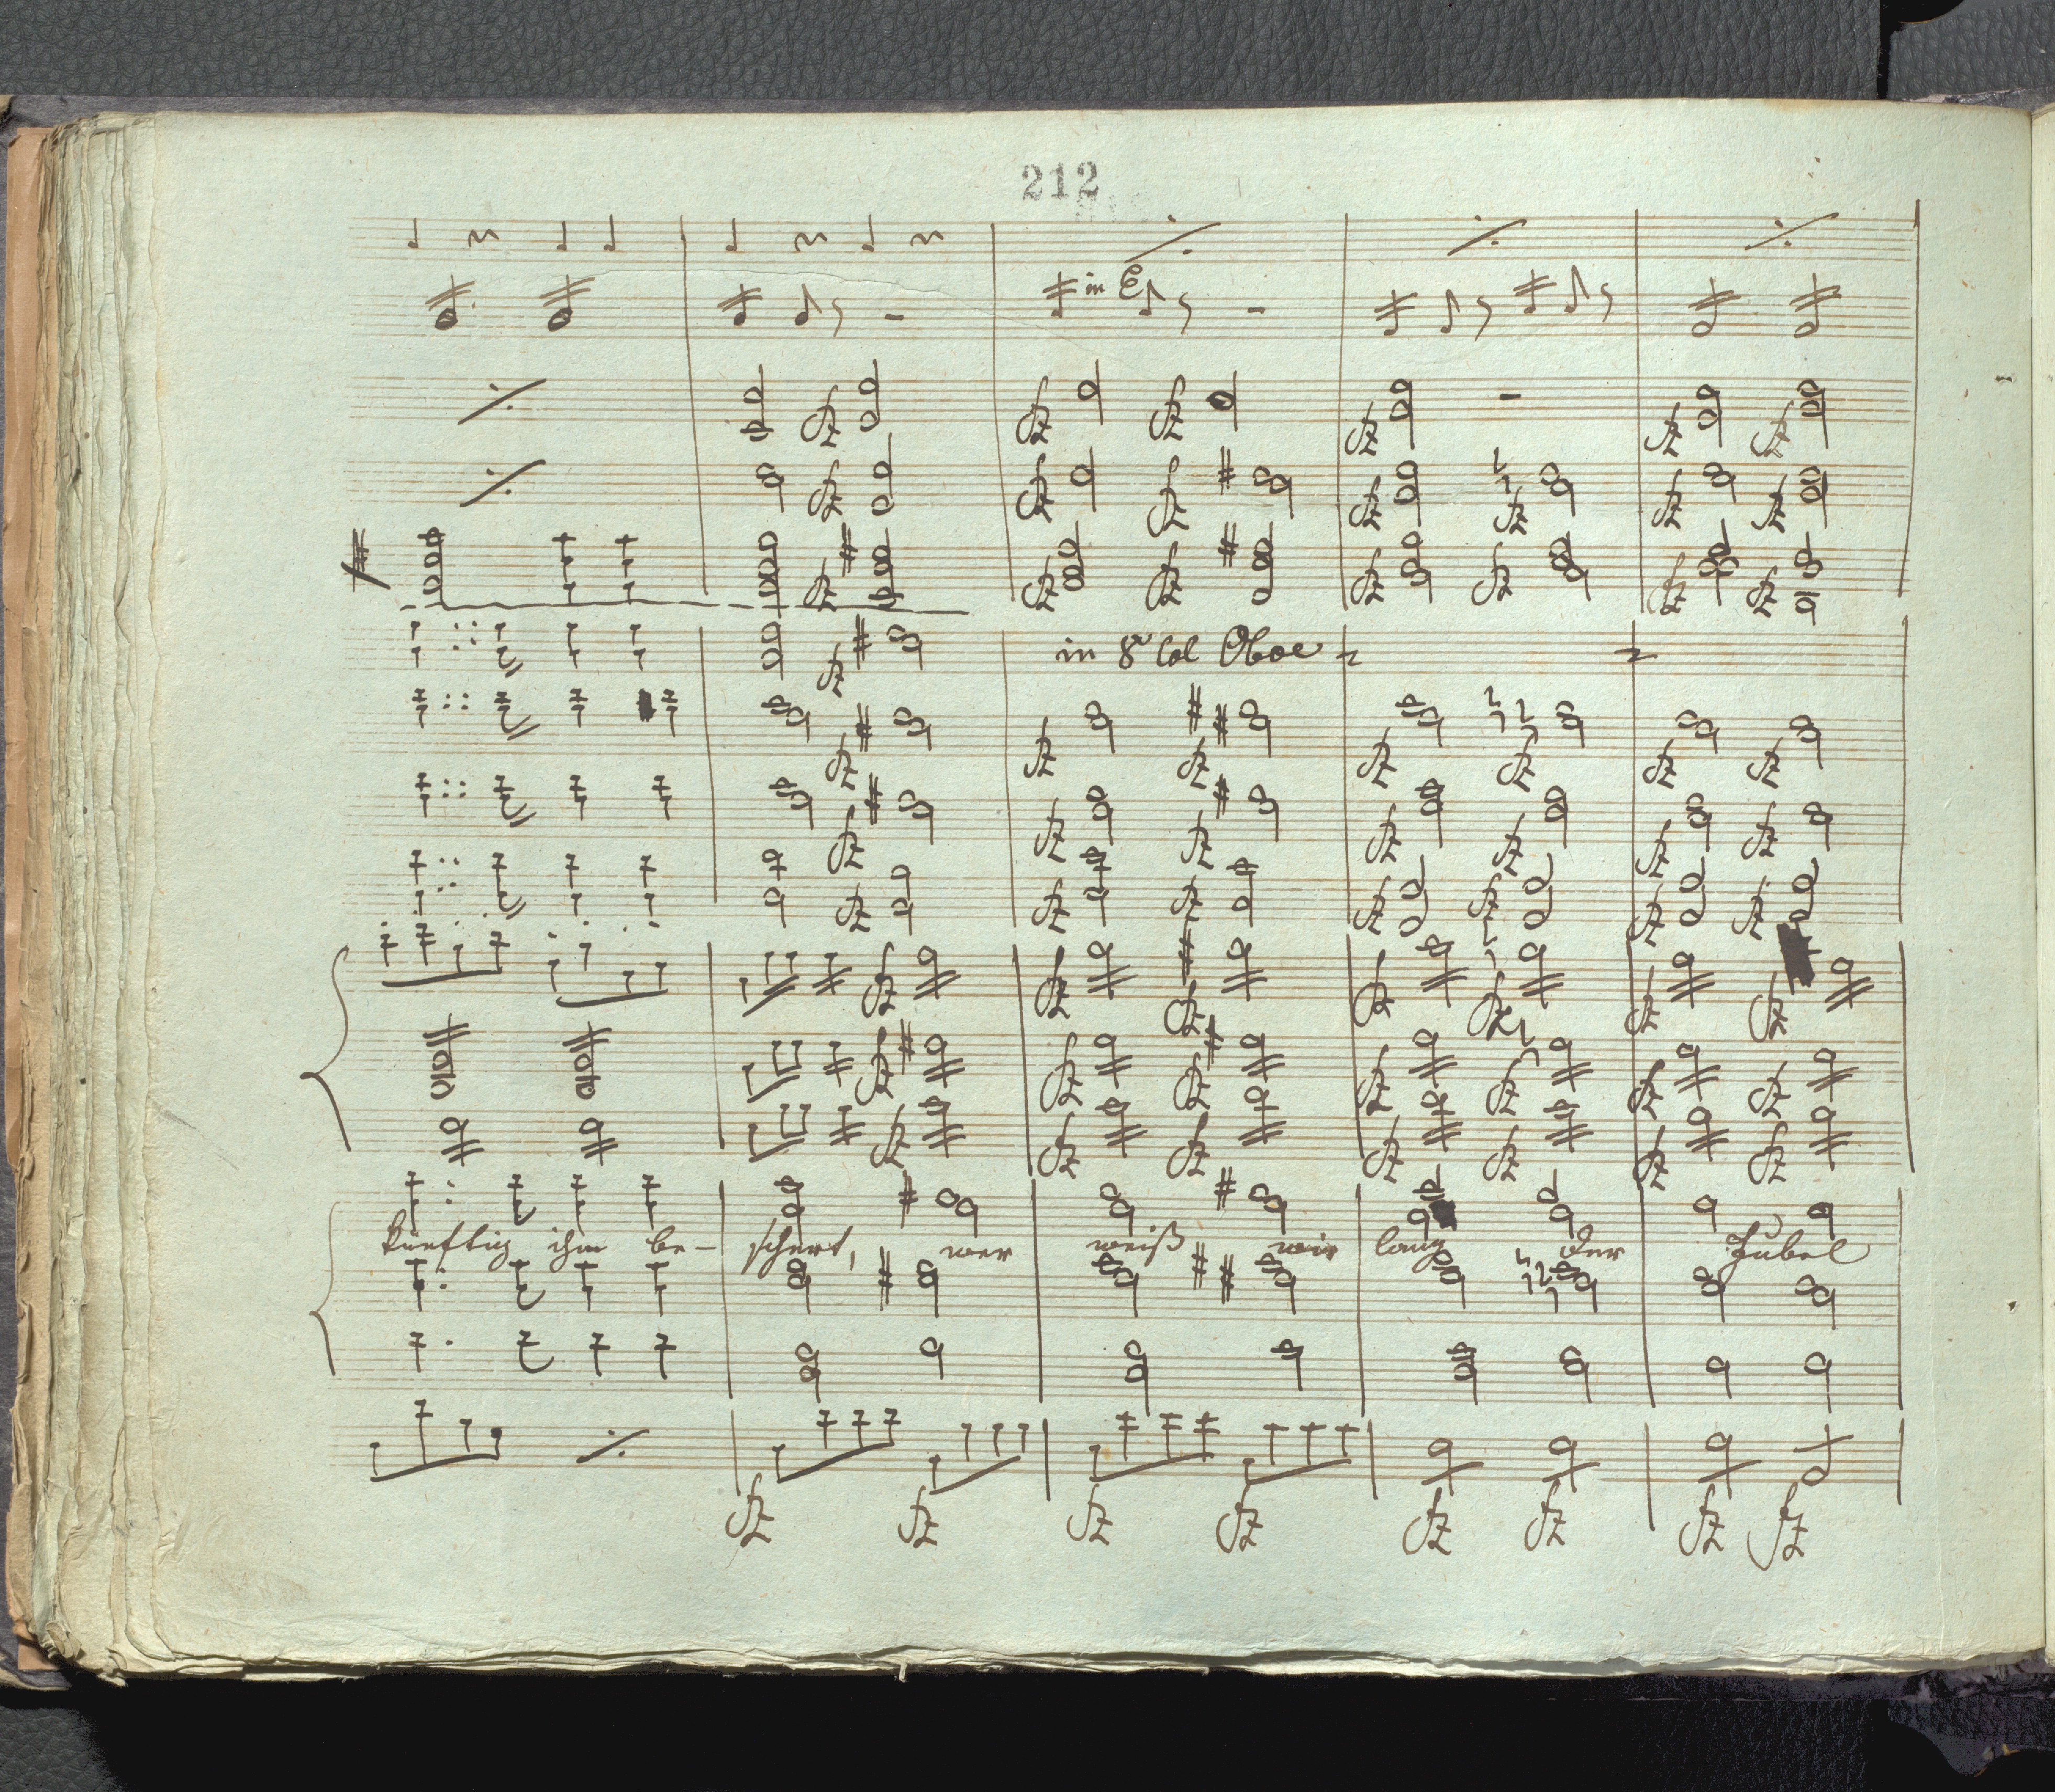 212
in E
in 8va Col Oboe
künftig ihm be- schert, wer weiß wie lang der Jubel